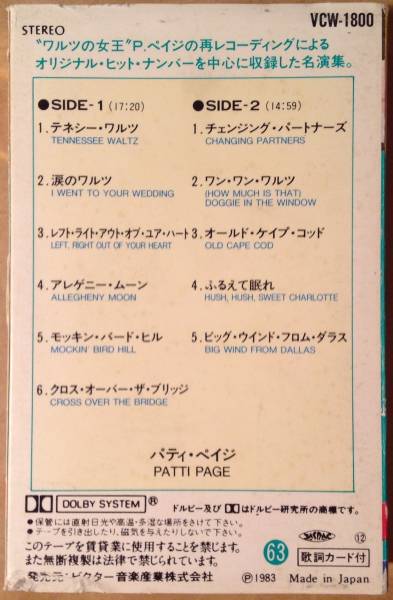 STEREO
VCW-1800
"ワルツの女王"P.ペイジの再レコーディングによる
オリジナル・ヒット・ナンバーを中心に収録した名演集。
●SIDE-1 (17:20)
1.テネシー・ワルツ
TENNESSEE WALTZ
2.涙のワルツ
I WENT TO YOUR WEDDING
3.レフト・ライト・アウト・オブ・ユア・ハート
LEFT, RIGHT OUT OF YOUR HEART
4.アレゲニー・ムーン
ALLEGHENY MOON
5.モッキン・バード・ヒル
MOCKIN' BIRD HILL
6.クロス・オーバー・ザ・ブリッジ
CROSS OVER THE BRIDGE
●SIDE-2 (14:59)
1.チェンジング・パートナーズ
CHANGING PARTNERS
2.ワン・ワン・ワルツ
(HOW MUCH IS THAT)
DOGGIE IN THE WINDOW
3.オールド・ケイプ・コッド
OLD CAPE COD
4.ふるえて眠れ
HUSH, HUSH, SWEET CHARLOTTE
5.ビッグ・ウインド・フロム・ダラス
BIG WIND FROM DALLAS
パティ・ペイジ
PATTI PAGE
DOLBY SYSTEM®
ドルビー及びはドルビー研究所の商標です。
●保管には直射日光や高温・多湿な場所をさけて下さい。
●テープを引き出したり、磁気を与えたりしないで下さい。
このテープを賃貸業に使用することを禁じます。
また無断複製は法律で禁じられています。
発売元:ビクター音楽産業株式会社
63
⑫
歌詞カード付
Ⓟ1983 Made in Japan